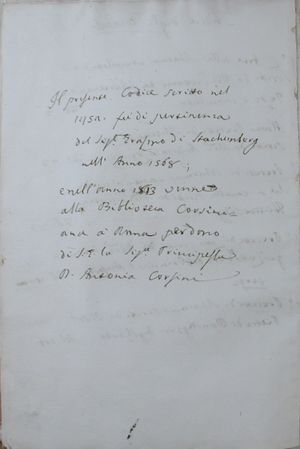 Il presente Codice scritto nel
1452. fu di pertinenza
del Sigr. Erasmo di Stachemberg
nell' Anno 1568;
e nell'anno 1813 venne
alla Biblioteca Corsini=
ana di Roma per dono
di S.E. la Sigra Principessa
D. Antonia Corsini